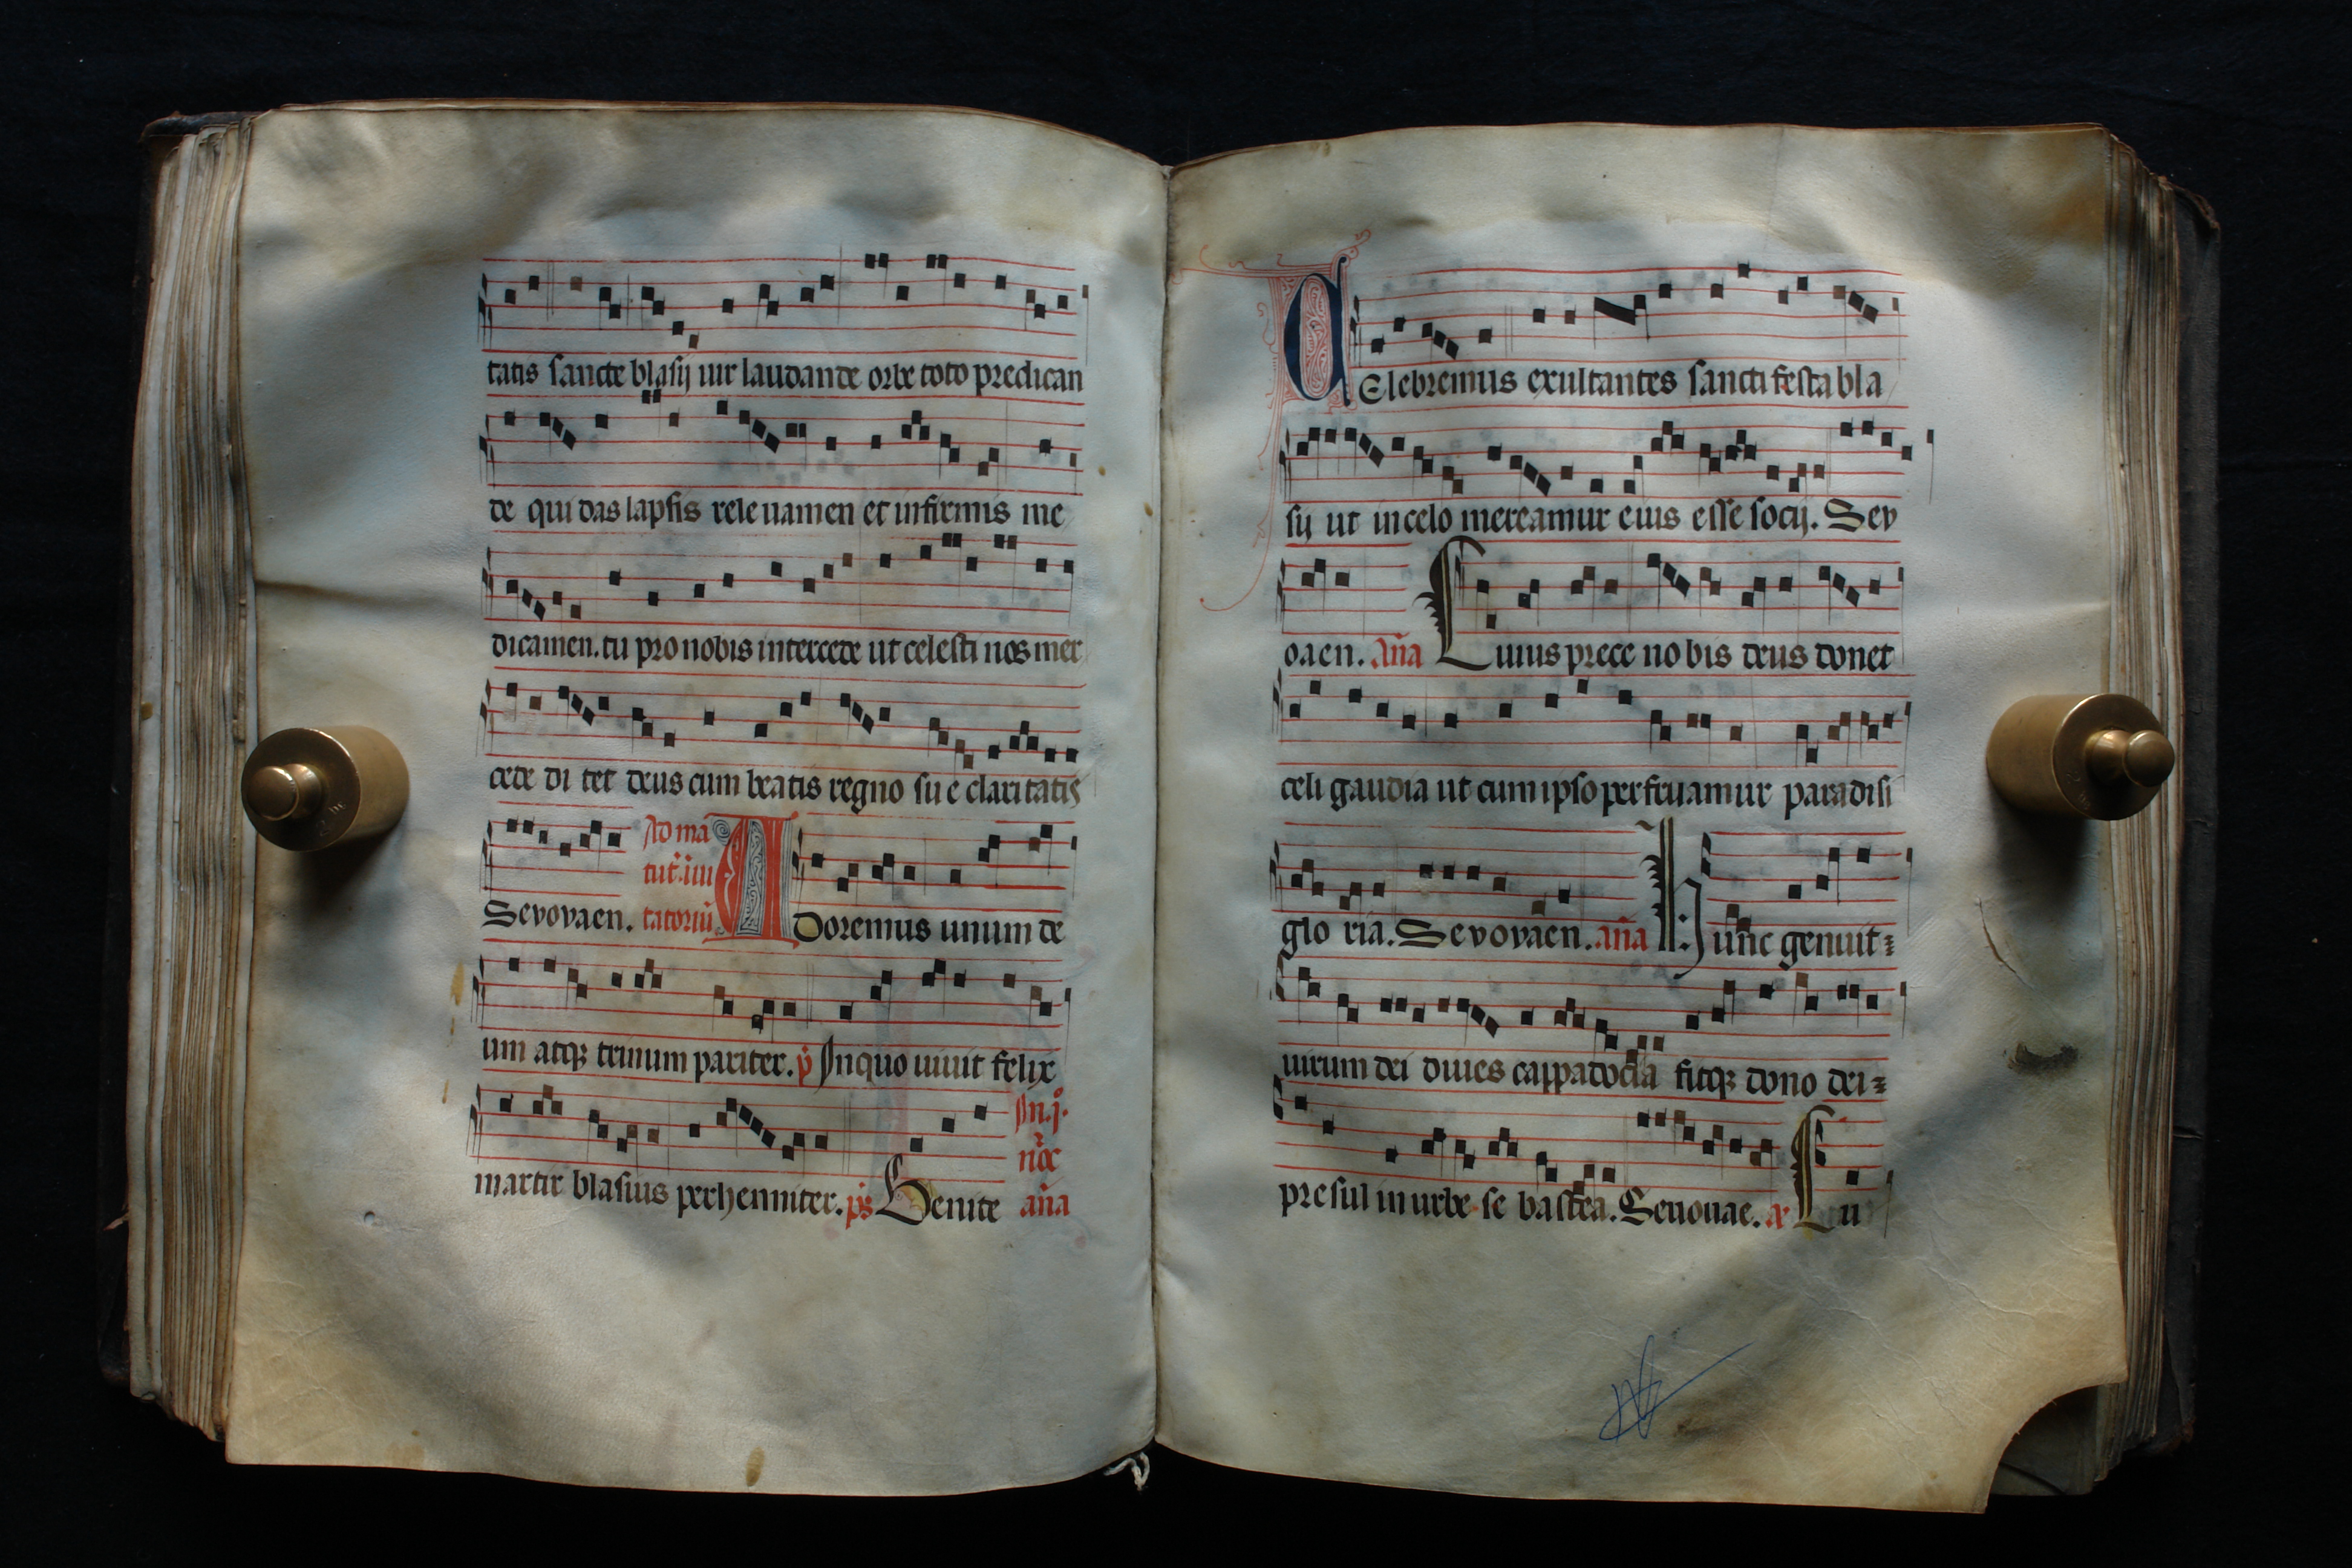 tatis sancte blasij uir laudande orbe toto predican
de qui das lapsis rele uamen et infirmis me
dicamen. tu pro nobis intercede ut celesti nos mer
cede di tet deus cum beatis regno su e claritatis
Sevovaen. Ad ma
tut. iui
tatoriū A Doremus unum de
um atqꝫ trinum pariter. ꝟ In quo uiuit felix
martir blasius perhenniter. ps Venite In .j.
noc
aña
C Elebremus exultantes sancti festa bla
sij ut in celo mereamur eius esse socij. Sev
oaen. aña Cuius prece no bis deus donet
celi gaudia ut cum ipso perfruamur paradisi
glo ria. Sevovaen. aña Hunc genuit
uirum dei diues cappadocia fitqꝫ dono dei
presul in urbe se bastea. Seuouae. a Cu